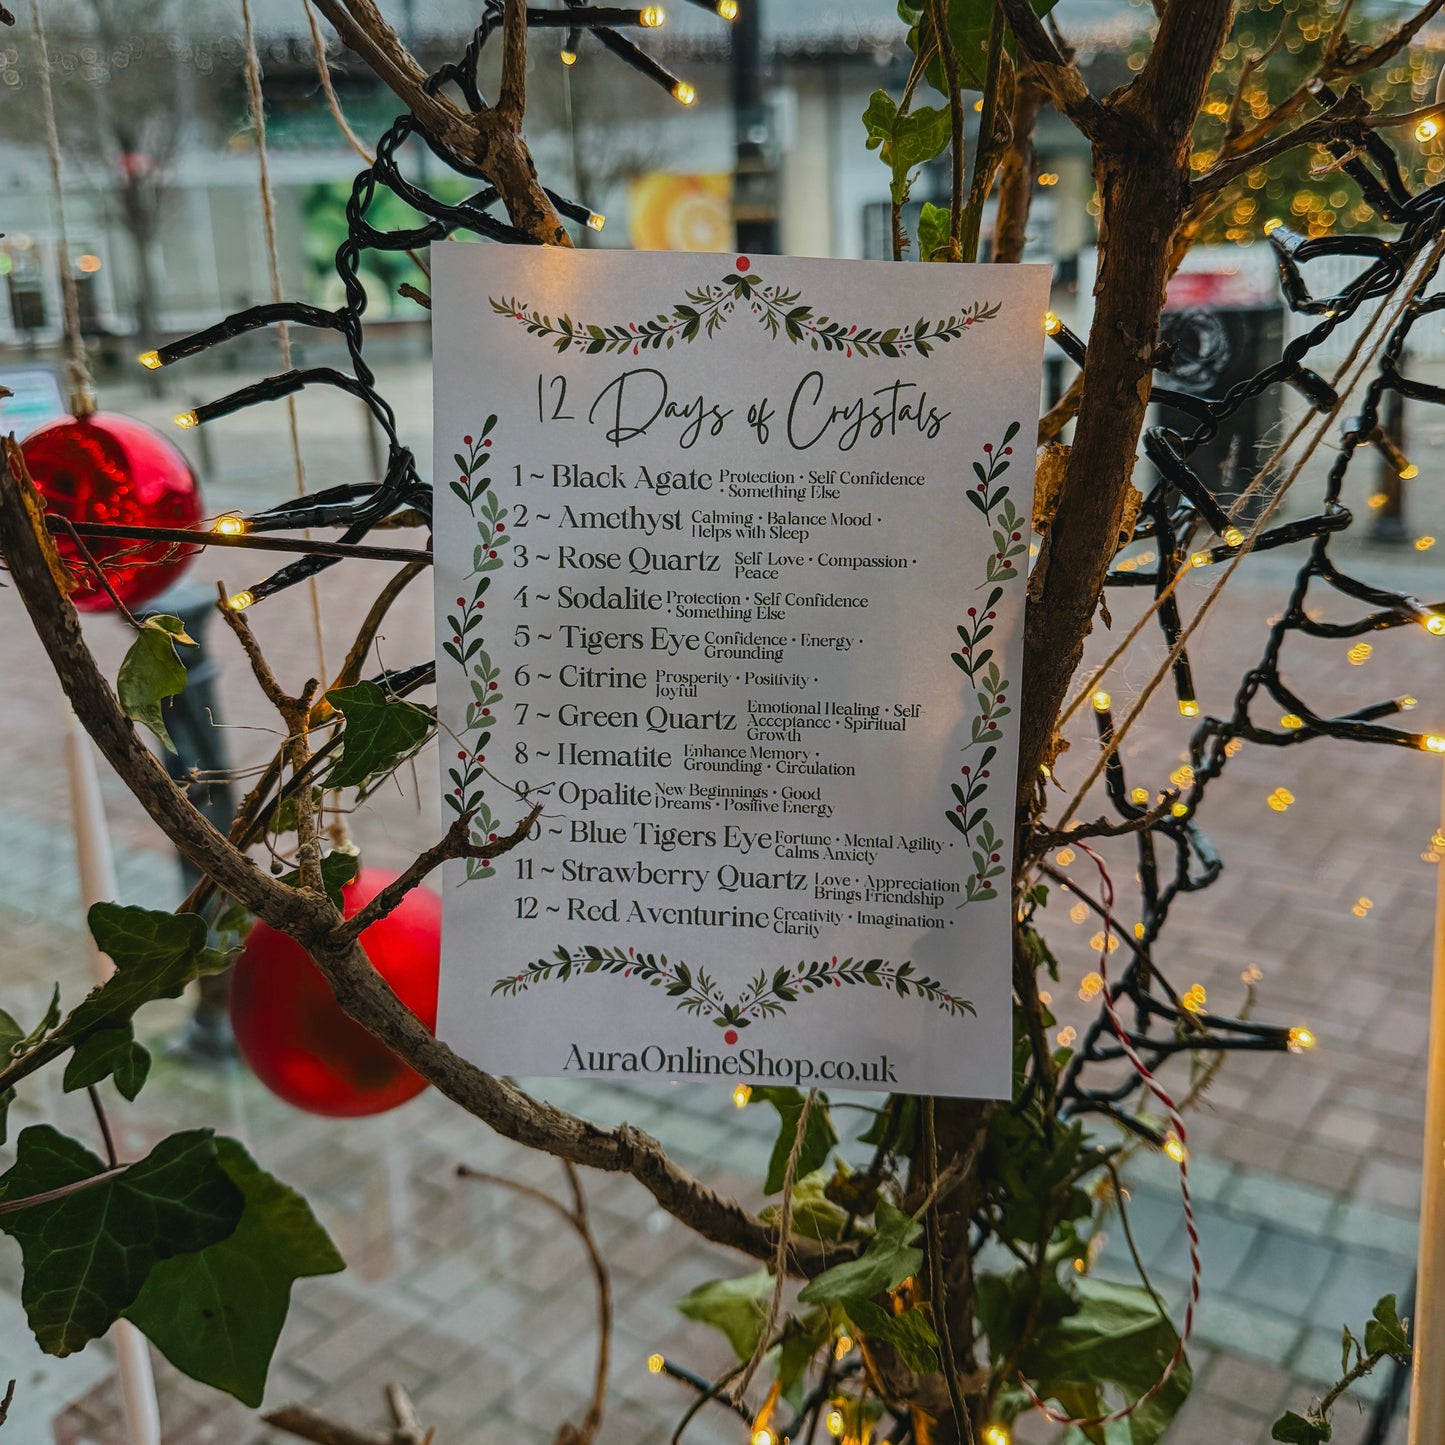 12 Days of Crystals
1 ~ Black Agate Protection • Self Confidence
• Something Else
2 ~ Amethyst Calming • Balance Mood •
Helps with Sleep
3 ~ Rose Quartz Self Love • Compassion •
Peace
4 ~ Sodalite Protection • Self Confidence
• Something Else
5 ~ Tigers Eye Confidence • Energy •
Grounding
6 ~ Citrine Prosperity • Positivity •
Joyful
7 ~ Green Quartz Emotional Healing • Self-
Acceptance • Spiritual
Growth
8 ~ Hematite Enhance Memory •
Grounding • Circulation
9 ~ Opalite New Beginnings • Good
Dreams • Positive Energy
0 ~ Blue Tigers Eye Fortune • Mental Agility •
Calms Anxiety
11 ~ Strawberry Quartz Love • Appreciation •
Brings Friendship
12 ~ Red Aventurine Creativity • Imagination •
Clarity
AuraOnlineShop.co.uk